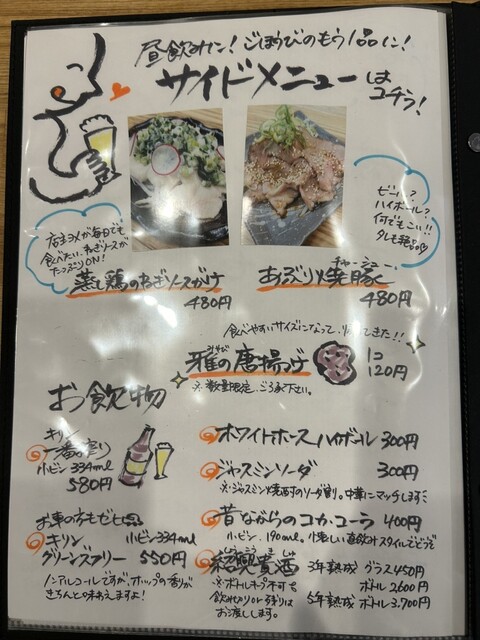 昼飲みに!ごほうびのもう1品に!
サイドメニューは
コチラ!
店主ヨメが毎日でも
食べたい、ねぎソースが
たっぷりON!
蒸し鶏のねぎソースがけ
480円
ビール?
ハイボール?
何でもこい!!
タレも絶品♡
チャーシュー
あぶり焼豚
480円
食べやすいサイズになって、帰ってきた!!
みやび
雅の唐揚げ
1コ
120円
※数量限定、ご了承下さい。
お飲物
キリン
一番搾り
小ビン334ml
580円
お車の方もぜひ
キリン
小ビン334ml
グリーンズフリー 550円
ノンアルコールですが、ホップの香りが
きちんと味わえますよ!
ホワイトホースハイボール 300円
ジャスミンソーダ 300円
※ジャスミン焼酎のソーダ割り。中華にマッチします
昔ながらのコカ・コーラ 400円
小ビン、190ml。懐しい直飲みスタイルでどうぞ
紹興貴酒
3年熟成 グラス450円
ボトル2,600円
5年熟成 ボトル3,700円
※ボトルキープ不可
飲み切りor残りは
お渡しします。